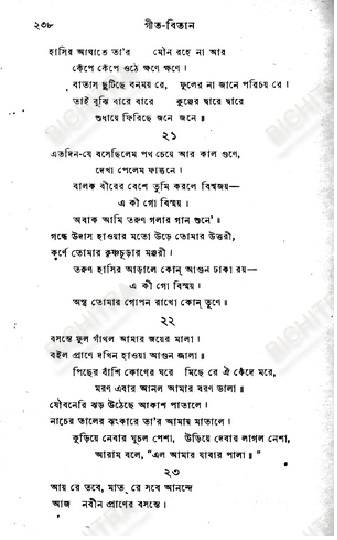 ২৩৮
গীত-বিতান
হাসির আঘাতে তা'র মৌন রহে না আর
কেঁপে কেঁপে ওঠে ক্ষণে ক্ষণে।
বাতাস ছুটিছে বনময় রে, ফুলের না জানে পরিচয় রে।
তাই বুঝি বারে বারে কুঞ্জের দ্বারে দ্বারে
শুধায়ে ফিরিছে জনে জনে॥
২১
এতদিন-যে বসেছিলেম পথ চেয়ে আর কাল গুণে,
দেখা পেলেম ফাল্গুনে।
বালক বীরের বেশে তুমি করলে বিশ্বজয়—
এ কী গো বিস্ময়।
অবাক আমি তরুণ গলার গান শুনে॥
গন্ধে উদাস হাওয়ার মতো উড়ে তোমার উত্তরী,
কর্ণে তোমার কৃষ্ণচূড়ার মঞ্জরী।
তরুণ হাসির আড়ালে কোন্ আগুন ঢাকা রয়—
এ কী গো বিস্ময়।
অস্ত্র তোমার গোপন রাখো কোন্ তূণে॥
২২
বসন্তে ফুল গাঁথল আমার জয়ের মালা।
বইল প্রাণে দখিন হাওয়া আগুন জ্বালা।
পিছের বাঁশি কোণের ঘরে মিছে রে ঐ কেঁদে মরে,
মরণ এবার আনল আমার বরণ ডালা॥
যৌবনেরি ঝড় উঠেছে আকাশ পাতালে।
নাচের তালের ঝংকারে তা'র আমায় মাতালে।
কুড়িয়ে নেবার ঘুচল পেশা, উড়িয়ে দেবার লাগল নেশা,
আরাম বলে, "এল আমার যাবার পালা॥"
২৩
আয় রে তবে, মাত্ রে সবে আনন্দে
আজ নবীন প্রাণের বসন্তে।